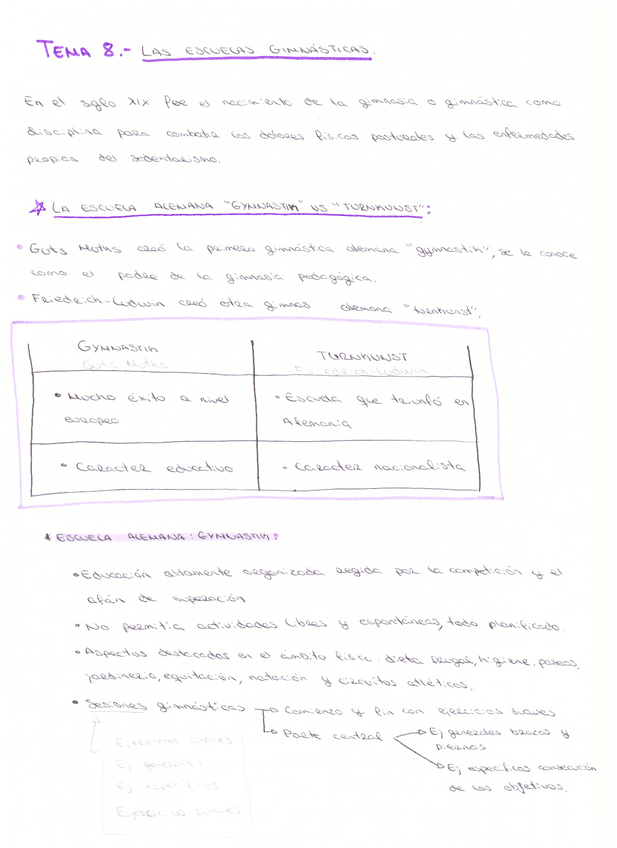 TEMA 8.- LAS ESCUELAS GIMNÁSTICAS.
En el siglo XIX fue el nacimiento de la gimnasia o gimnástica como
disciplina para combatir los dolores físicos posturales y las enfermedades
propias del sedentarismo.
LA ESCUELA ALEMANA "GYMNASTIK" VS "TURNKUNST":
• Guts Muths creó la primera gimnástica alemana "gymnastik", se le conoce
como el padre de la gimnasia pedagógica.
• Friedrich-Ludwin creó otra gimnas alemana "turnkunst".
GYMNASTIK
Guts Muths
TURNKUNST
Friedrich-Ludwin
• Mucho éxito a nivel
europeo
• Escuela que triunfó en
Alemania
• Caracter educativo
• Caracter nacionalista
* ESCUELA ALEMANA: GYMNASTIK:
• Educación altamente organizada regida por la competición y el
afán de superación
• No permitía actividades libres y espontáneas, todo planificado.
• Aspectos destacados en el ámbito físico: dieta frugal, higiene, paseos,
jardinería, equitación, natación y circuitos atléticos.
• Sesiones gimnásticas → Comienzo y fin con ejercicios suaves
→ Parte central → Ej generales brazos y
piernas
→ Ej específicos consecución
de los objetivos.
Ejercicios suaves
Ej generales
Ej específicos
Ejercicios suaves